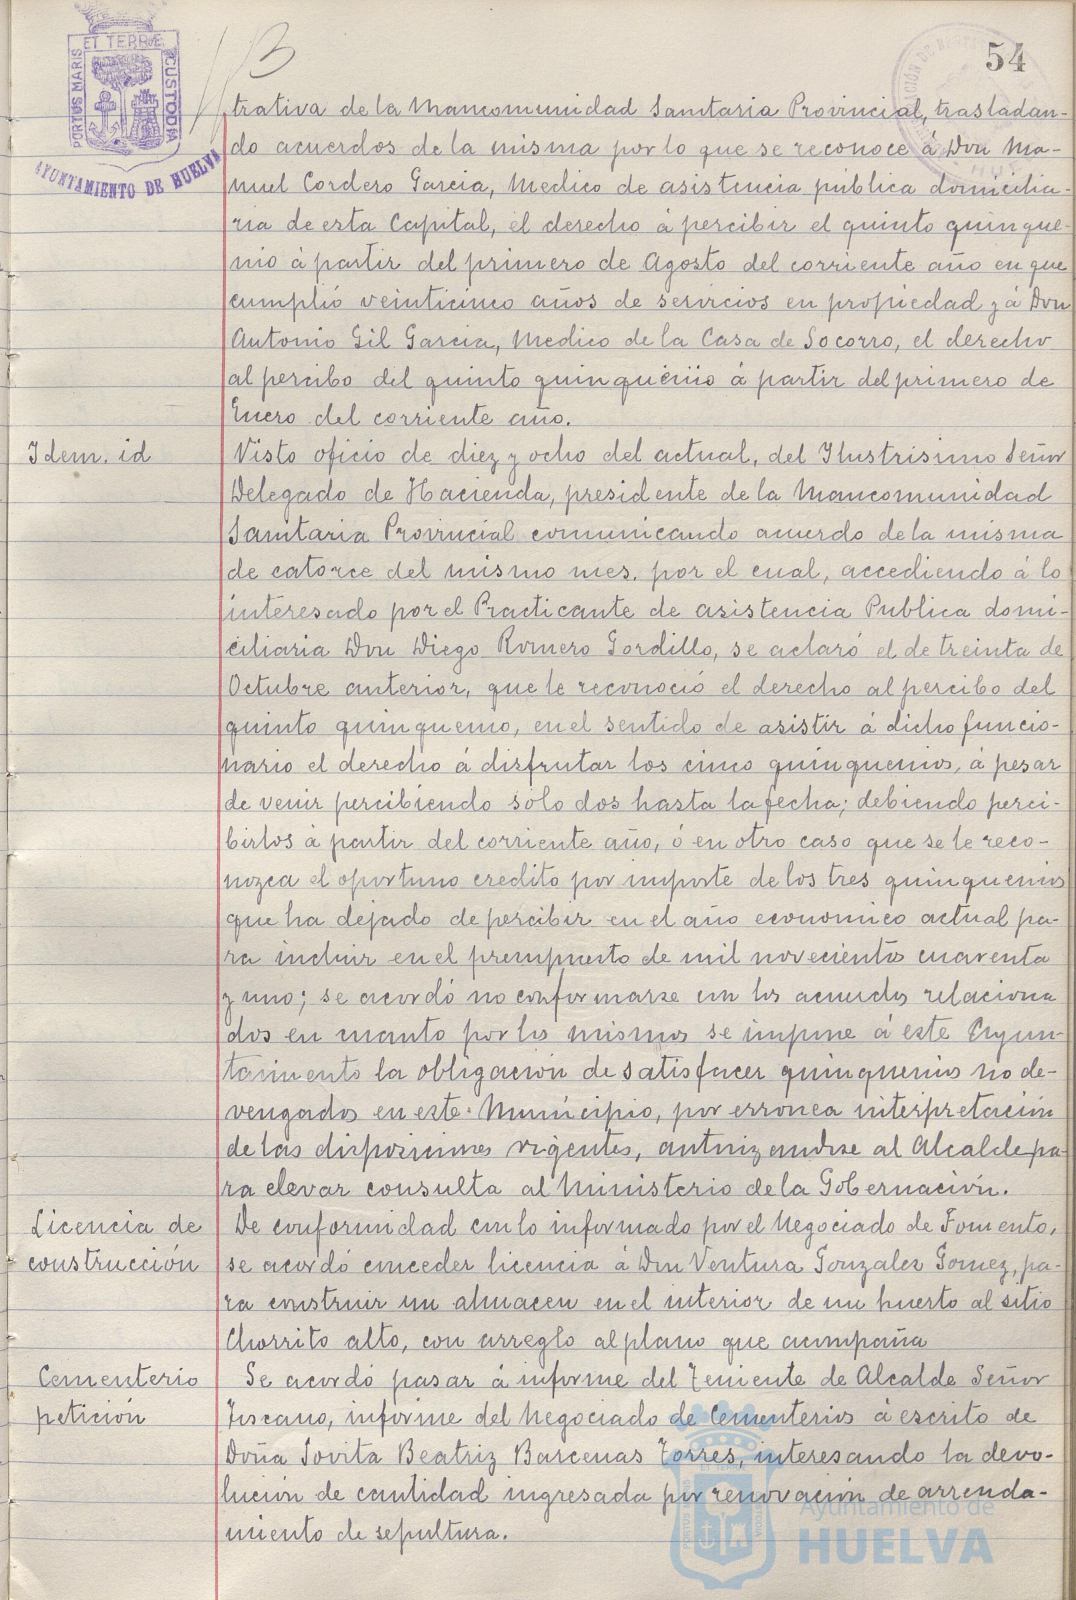 54
ET TERRÆ
PORTUS MARIS
CUSTODIA
AYUNTAMIENTO DE HUELVA
trativa de la Mancomunidad Sanitaria Provincial, trasladan-
do acuerdos de la misma por lo que se reconoce á Don Ma-
nuel Cordero Garcia, Medico de asistencia pública domicilia-
ria de esta Capital, el derecho á percibir el quinto quinque-
nio á partir del primero de Agosto del corriente año en que
cumplió veinticinco años de servicios en propiedad y á Don
Antonio Gil Garcia, Medico de la Casa de Socorro, el derecho
al percibo del quinto quinquenio á partir del primero de
Enero del corriente año.
Idem. id
Visto oficio de diez y ocho del actual, del Ilustrisimo Señor
Delegado de Hacienda, presidente de la Mancomunidad
Sanitaria Provincial comunicando acuerdo de la misma
de catorce del mismo mes, por el cual, accediendo á lo
interesado por el Practicante de asistencia Publica domi-
ciliaria Don Diego Romero Gordillo, se aclaró el de treinta de
Octubre anterior, que le reconoció el derecho al percibo del
quinto quinquenio, en el sentido de asistir á dicho funcio-
nario el derecho á disfrutar los cinco quinquenios, á pesar
de venir percibiendo sólo dos hasta la fecha; debiendo perci-
birlos á partir del corriente año, ó en otro caso que se le reco-
nozca el oportuno credito por importe de los tres quinquenios
que ha dejado de percibir en el año economico actual pa-
ra incluir en el presupuesto de mil novecientos cuarenta
y uno; se acordó no conformarse con los acuerdos relaciona
dos en cuanto por los mismos se impone á este Ayun-
tamiento la obligación de satisfacer quinquenios no de-
vengados en este Municipio, por erronea interpretación
de las disposiciones vigentes, autorizandose al Alcalde pa-
ra elevar consulta al Ministerio de la Gobernación.
Licencia de
construcción
De conformidad con lo informado por el Negociado de Fomento,
se acordó conceder licencia á Don Ventura Gonzalez Gomez, pa-
ra construir un almacen en el interior de un huerto al sitio
Chorrito alto, con arreglo al plano que acompaña
Cementerio
petición
Se acordó pasar á informe del Teniente de Alcalde Señor
Toscano, informe del Negociado de Cementerios á escrito de
Doña Jovita Beatriz Barcenas Torres, interesando la devo-
lución de cantidad ingresada por renovación de arrenda-
miento de sepultura.
Ayuntamiento de
HUELVA